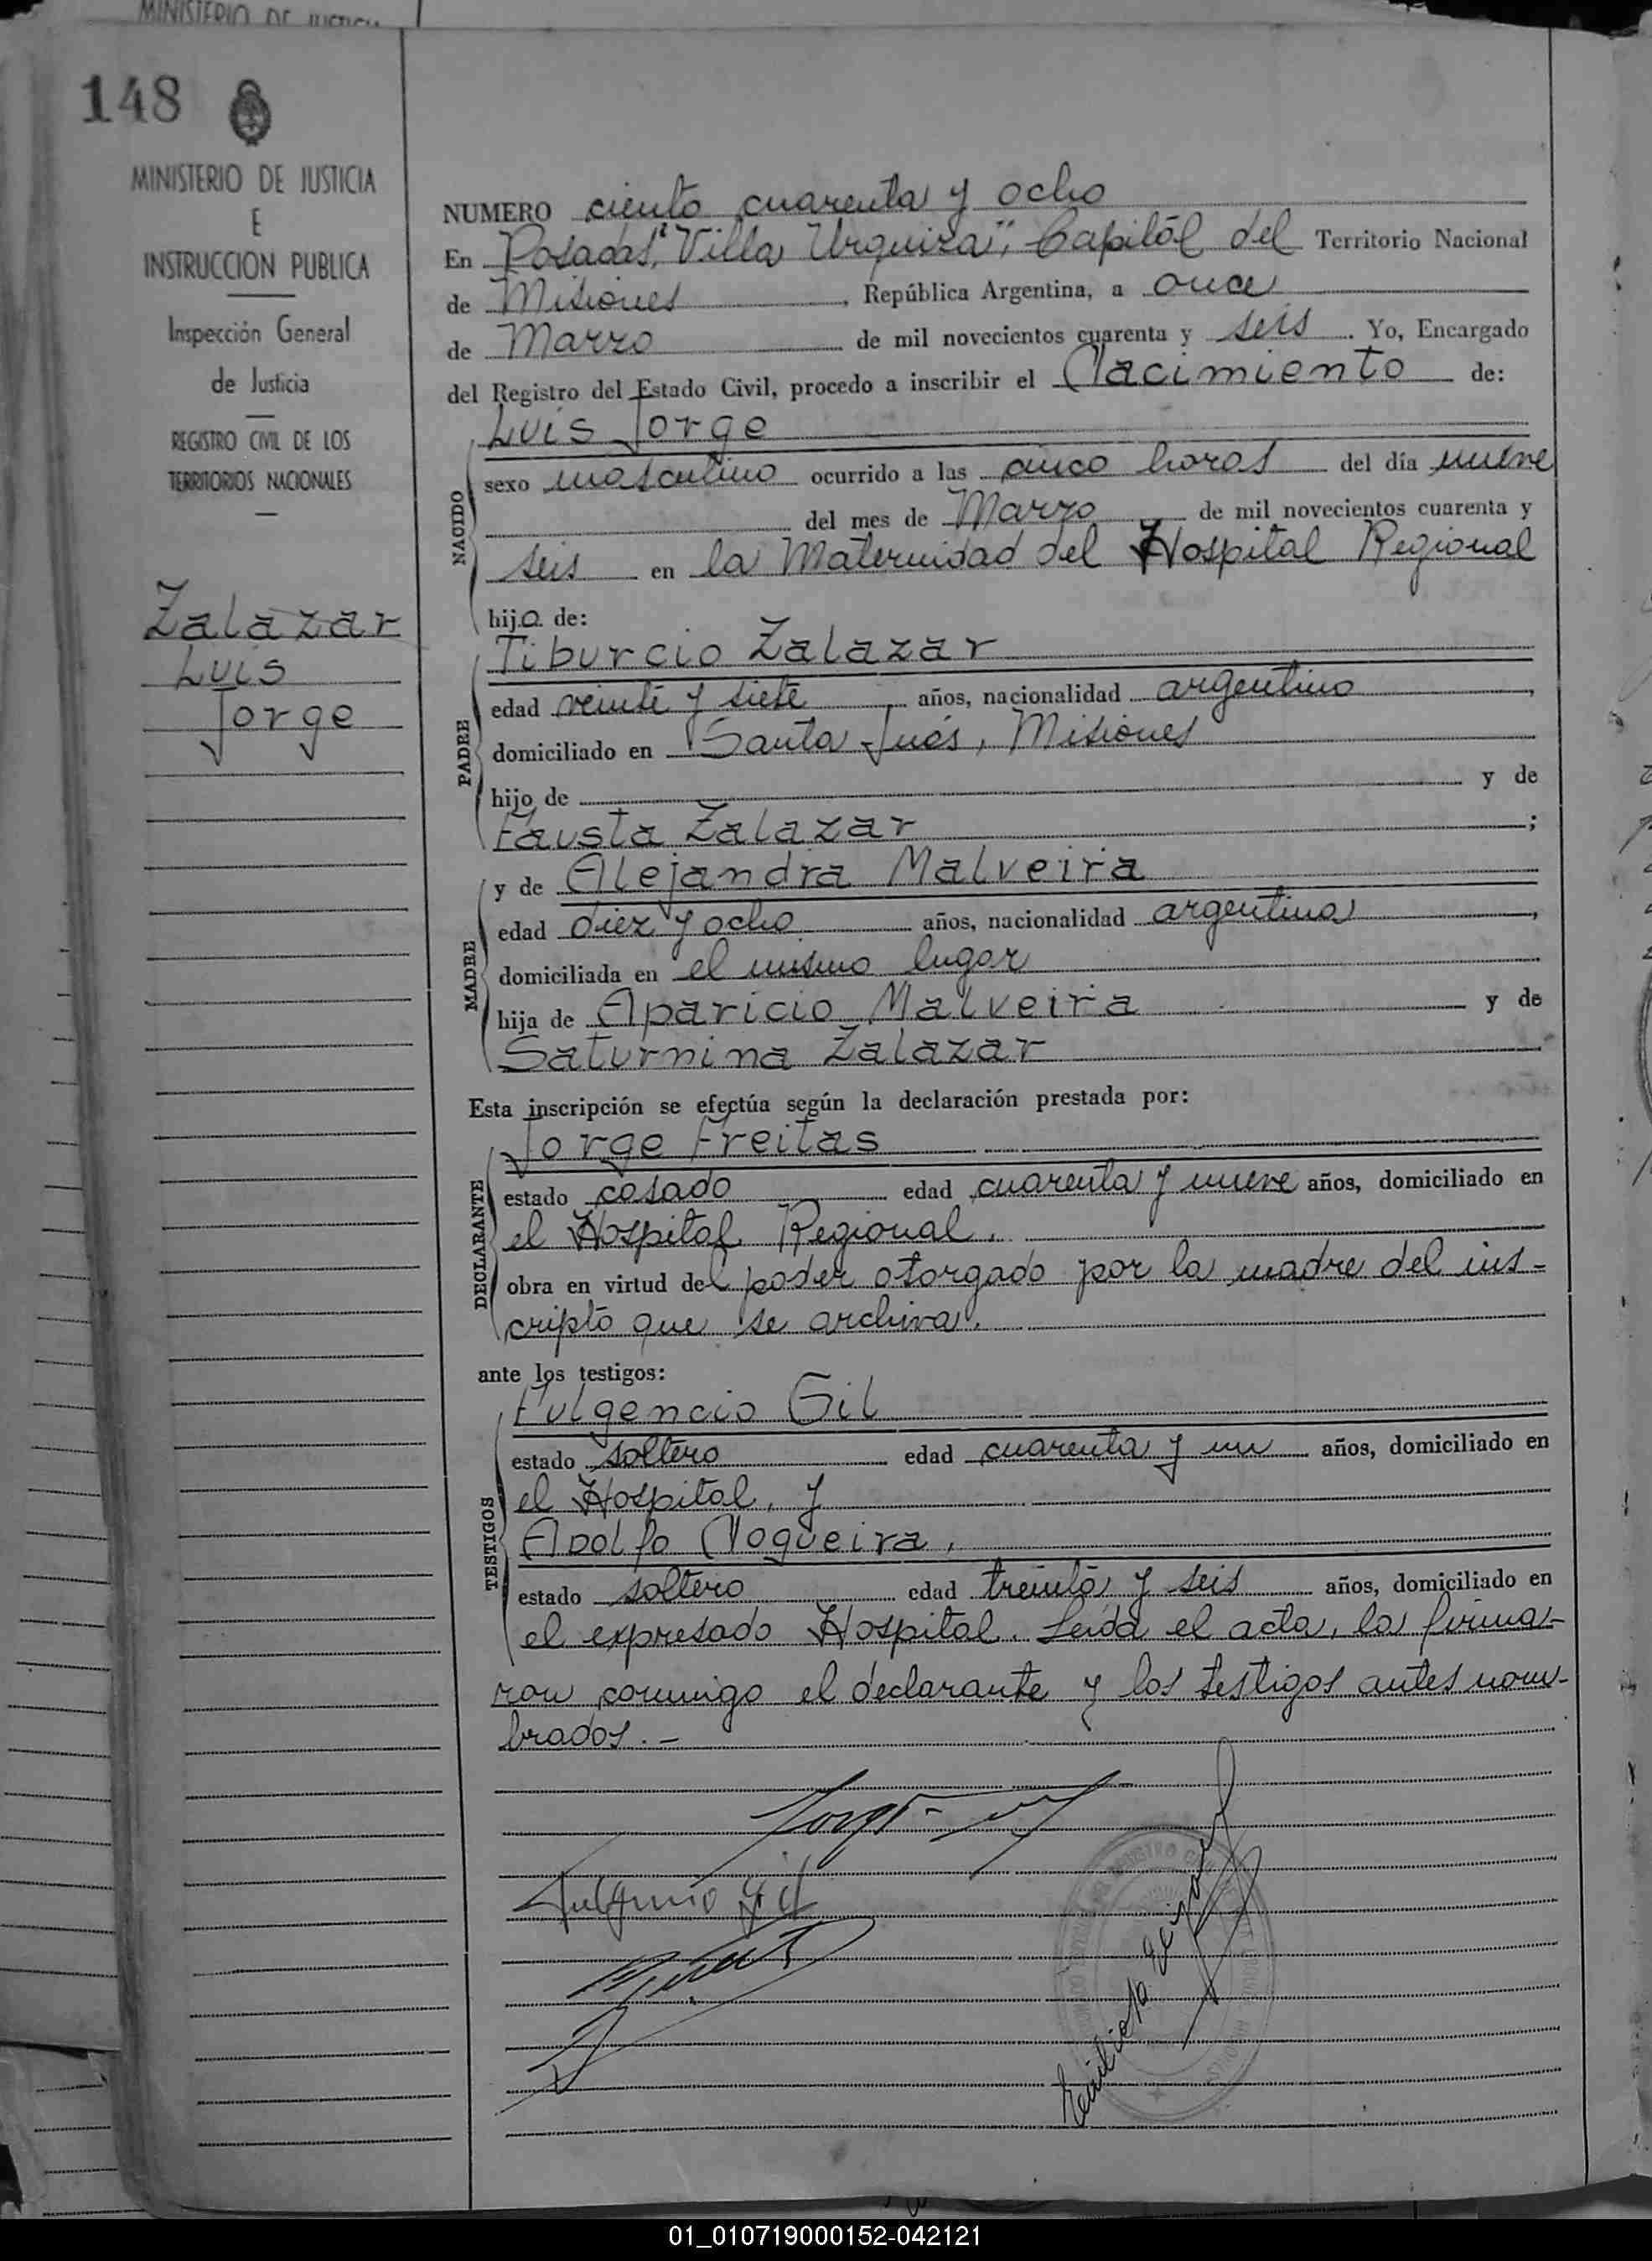 MINISTERIO DE JUSTICIA
148
MINISTERIO DE JUSTICIA
E
INSTRUCCION PUBLICA
Inspección General
de Justicia
REGISTRO CIVIL DE LOS
TERRITORIOS NACIONALES
Zalazar
Luis
Jorge
NUMERO ciento cuarenta y ocho
En Posadas, "Villa Urquiza", Capital del Territorio Nacional
de Misiones, República Argentina, a once
de Marzo de mil novecientos cuarenta y seis. Yo, Encargado
del Registro del Estado Civil, procedo a inscribir el Nacimiento de:
NACIDO
Luis Jorge
sexo masculino ocurrido a las cinco horas del día nueve
del mes de Marzo de mil novecientos cuarenta y
seis en la Maternidad del Hospital Regional
hijo de:
PADRE
Tiburcio Zalazar
edad veinte y siete años, nacionalidad argentino,
domiciliado en Santa Inés, Misiones
hijo de y de
Fausta Zalazar;
MADRE
y de Alejandra Malveira
edad diez y ocho años, nacionalidad argentina,
domiciliada en el mismo lugar
hija de Aparicio Malveira y de
Saturnina Zalazar
Esta inscripción se efectúa según la declaración prestada por:
DECLARANTE
Jorge Freitas
estado casado edad cuarenta y nueve años, domiciliado en
el Hospital Regional.
obra en virtud del poder otorgado por la madre del ins-
cripto que se archiva.
ante los testigos:
TESTIGOS
Fulgencio Gil
estado soltero edad cuarenta y un años, domiciliado en
el Hospital, y
Adolfo Nogueira,
estado soltero edad treinta y seis años, domiciliado en
el expresado Hospital. Leída el acta, la firma-
ron conmigo el declarante y los testigos antes nom-
brados.-
Fulgencio Gil
01_010719000152-042121